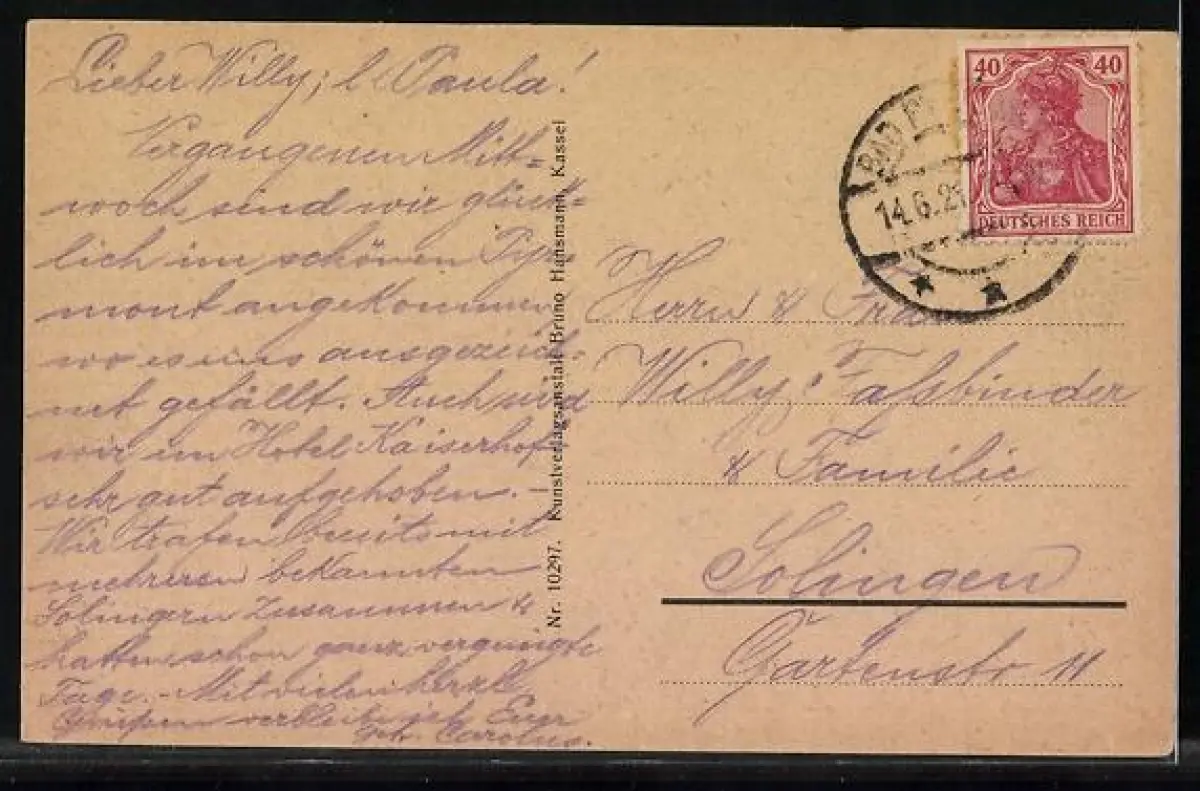 Lieber Willy, l. Paula!
Vergangenen Mitt=
woch sind wir glück=
lich im schönen Pyr=
mont angekommen,
wo es uns ausgezeich=
net gefällt. Auch sind
wir im Hotel Kaiserhof
sehr gut aufgehoben. –
Wir trafen bereits mit
mehreren bekannten
Solingern zusammen &
hatten schon ganz vergnügte
Tage. – Mit vielen herzl.
Grüßen verbleibe ich Euer
Carolus.
Nr. 10297. Kunstverlagsanstalt Bruno Hansmann, Kassel
40 40
DEUTSCHES REICH
BAD
14.6.2
Herrn & Frau
Willy Fassbinder
& Familie
Solingen
Gartenstr 11